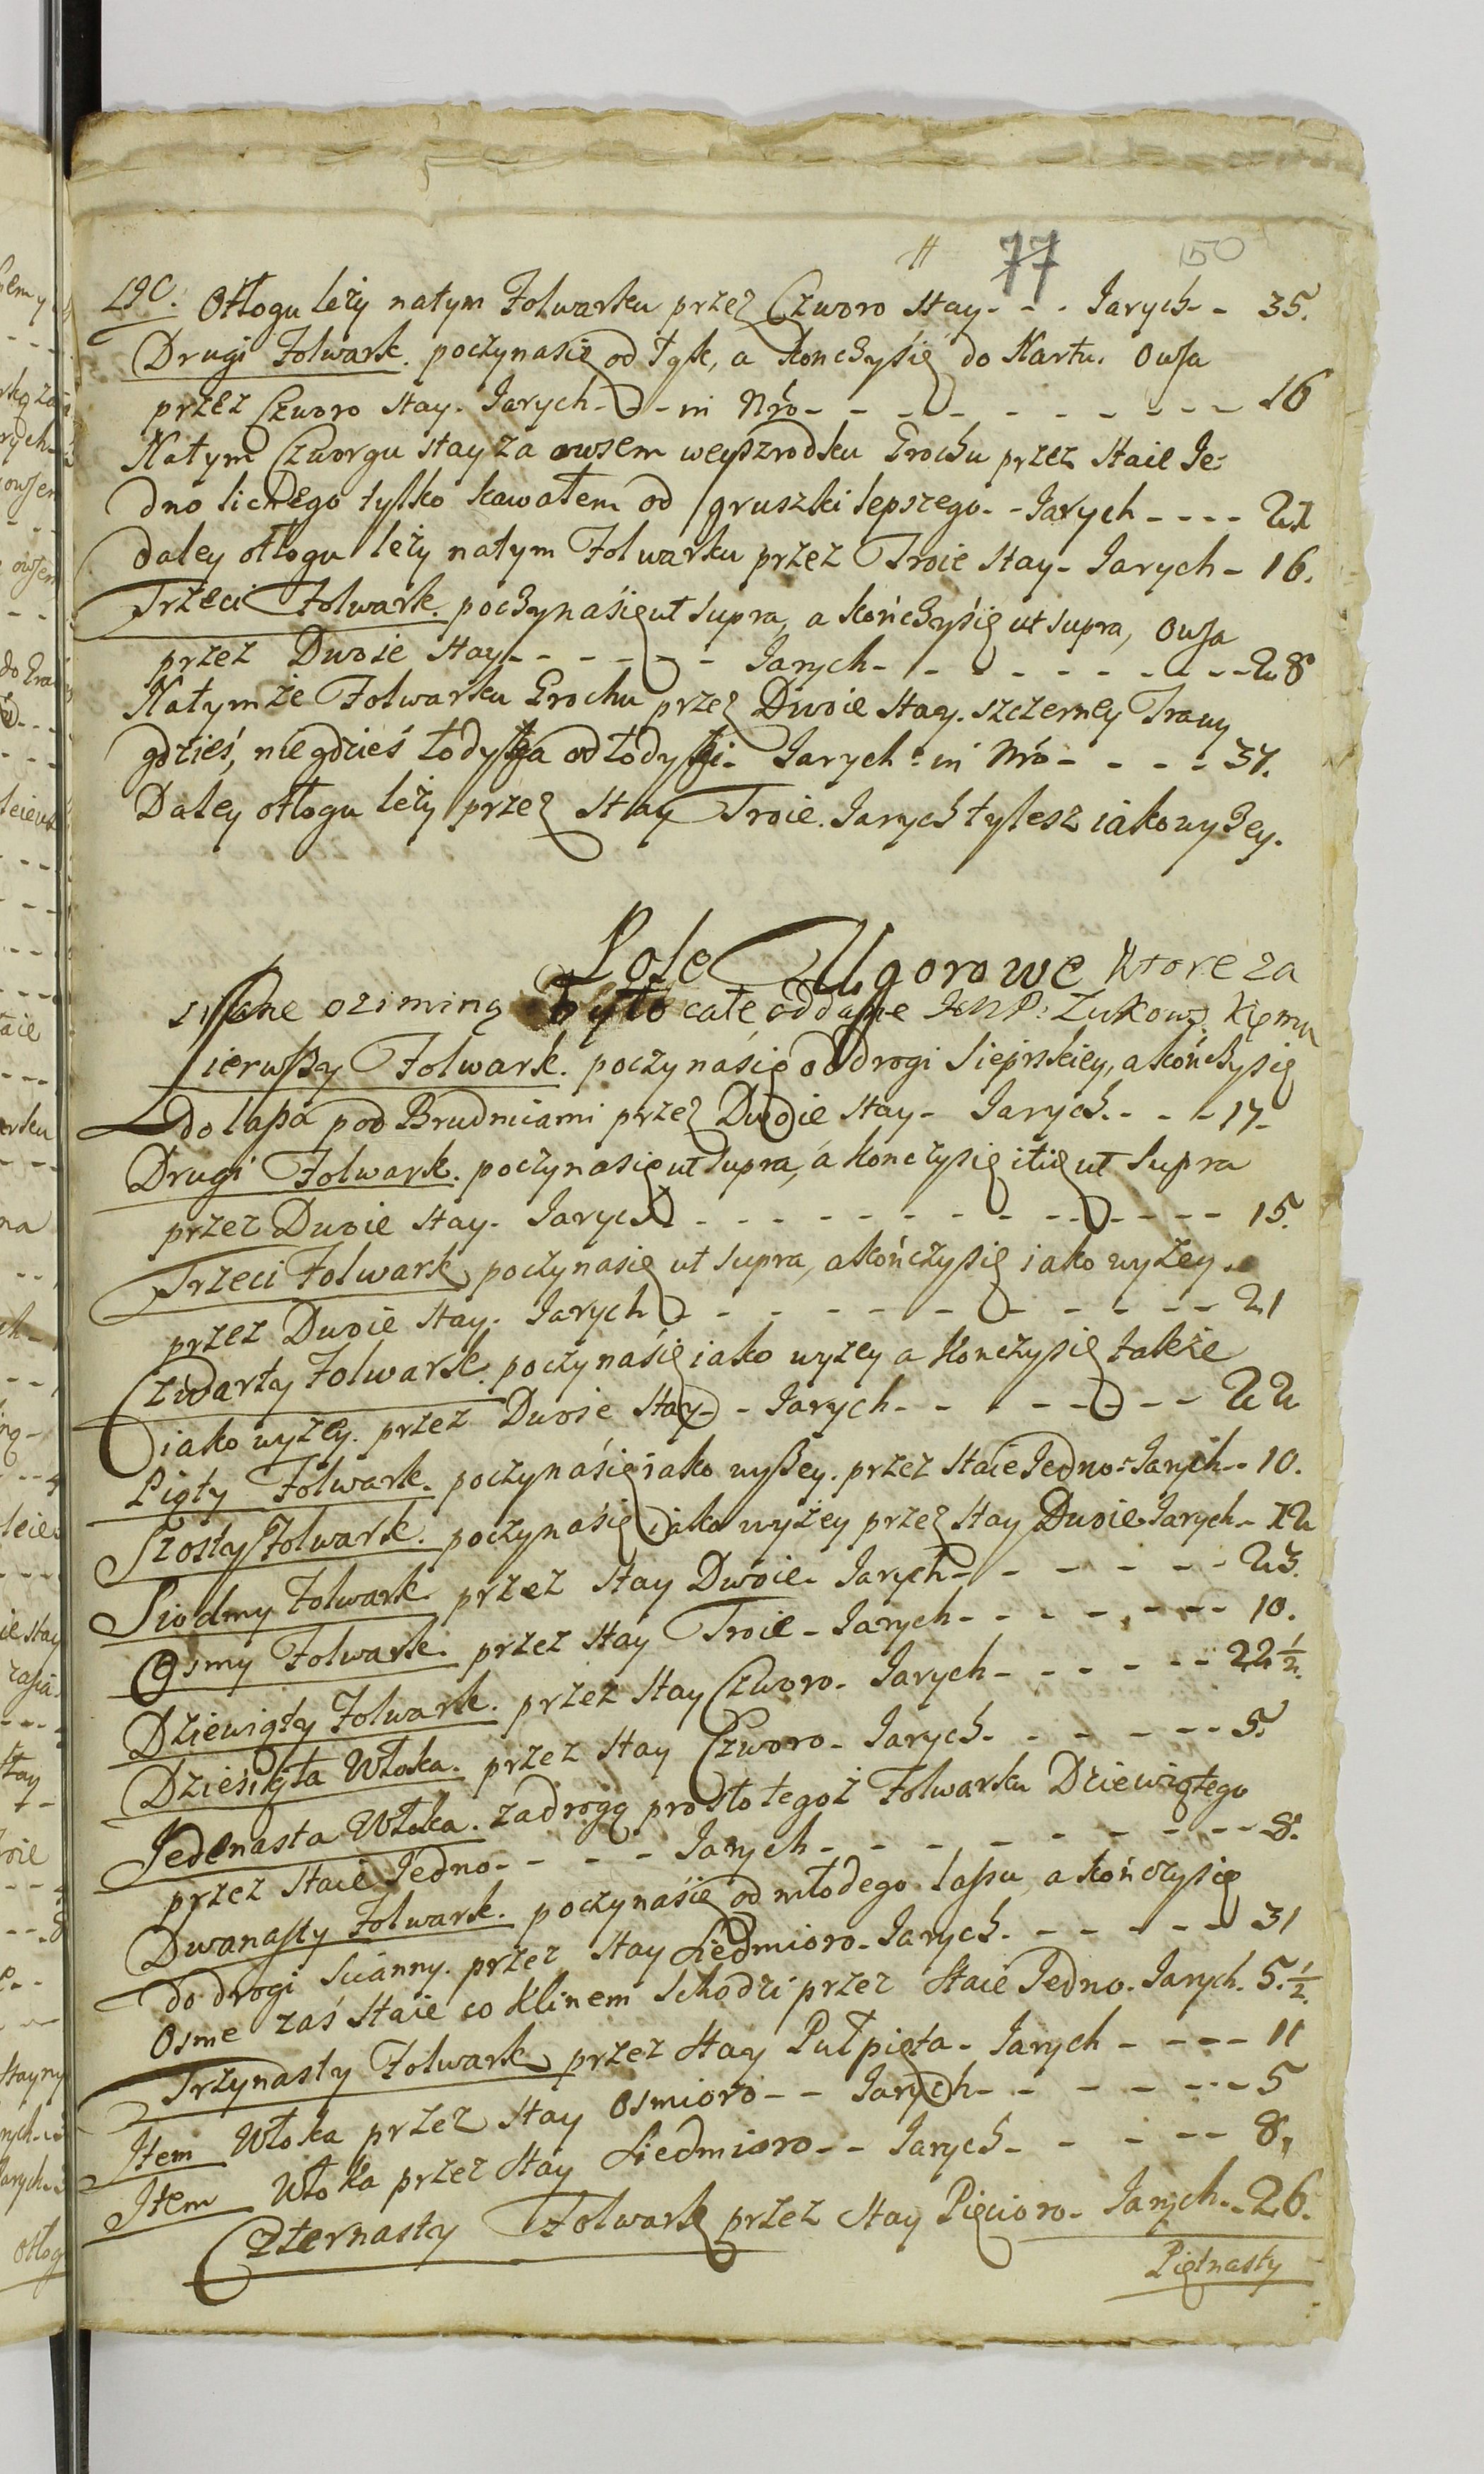 77 150
Odłogu leży natym Folwarku przez Czworo Stay - - - Jarych - - 35.
Drugi Folwark. poczynasię od Łąk, a konczysię do Kartu. Owsa
przez Czworo Stay. Jarych - - in Nro - - - - - - - - - 16
Natym Czworgu stay za owsem weyszrodku Grochu przez Staie Je-
dno lichego tylko kawałem od gruszki lepszego - - Jarych - - - - 21
daley odłogu leży natym Folwarku przez Troie Stay - Jarych - 16.
Trzeci Folwark. poczynasię ut supra, a kończysię ut supra, Owsa
przez Dwoie Stay - - - - - - Jarych - - - - - - - - - 28
Natymże Folwarku Grochu przez Dwoie Stay. szczerney Trawy
gdzieś, niegdzieś łodyga odłodygi - Jarych - in Nro - - - - 37.
Daley odłogu leży przez Stay Troie. Jarych tylesz iakowyżey.
Pole Ugorowe Ktore za
oziminą było całe oddane JMP: Zukowskiemu
Pierwszy Folwark. poczynasię oddrogi Siepskiey, akończysię
do lassa pod Brudnicami przez Dwoie Stay - Jarych - - - 17 -
Drugi Folwark. poczynasię ut supra, a konczysię ut supra
przez Dwoie Stay - Jarych - - - - - - - - - - - - 15.
Trzeci Folwark poczynasię ut supra, akończysię iako wyżey.
przez Dwoie Stay - Jarych - - - - - - - - - - 21
Czwarty Folwark. poczynasię iako wyżey a Konczysię także
iako wyżey. przez Dwoie Stay - - Jarych - - - - - - - 22
Piąty Folwark. poczynasię iako wyszey. przez Staie Jedno - Jarych - - 10.
Szosty Folwark. poczynasię iako wyżey przez Stay Dwoie Jarych - 12
Siodmy Folwark przez Stay Dwoie - Jarych - - - - - - 23.
Osmy Folwark. przez Stay Troie - Jarych - - - - - - - 10.
Dziewiąty Folwark. przez Stay Czworo - Jarych - - - - - - 22 1/2.
Dziesiąta Włoka. przez Stay Czworo - Jarych - - - - - - 5.
Jedenasta Włoka. zadrogą prosto tegoż Folwarku Dziewiątego
przez Staie Jedno - - - - Jarych - - - - - - - - - 8.
Dwanasty Folwark. poczynasię od młodego lassu, a kończysię
do drogi Scianny. przez Stay Siedmioro - Jarych - - - - - 31
Osme zaś Staie co Klinem schodzi przez Staie Jedno. Jarych. 5. 1/2.
Trzynasty Folwark przez Stay Pułpięta - Jarych - - - - 11
Item Włoka przez Stay Osmioro - - Jarych - - - - - - 5
Item Włoka przez Stay Siedmioro - - Jarych - - - - - 8,
Czternasty Folwark przez Stay Pięcioro - Jarych - - 26.
Piętnasty